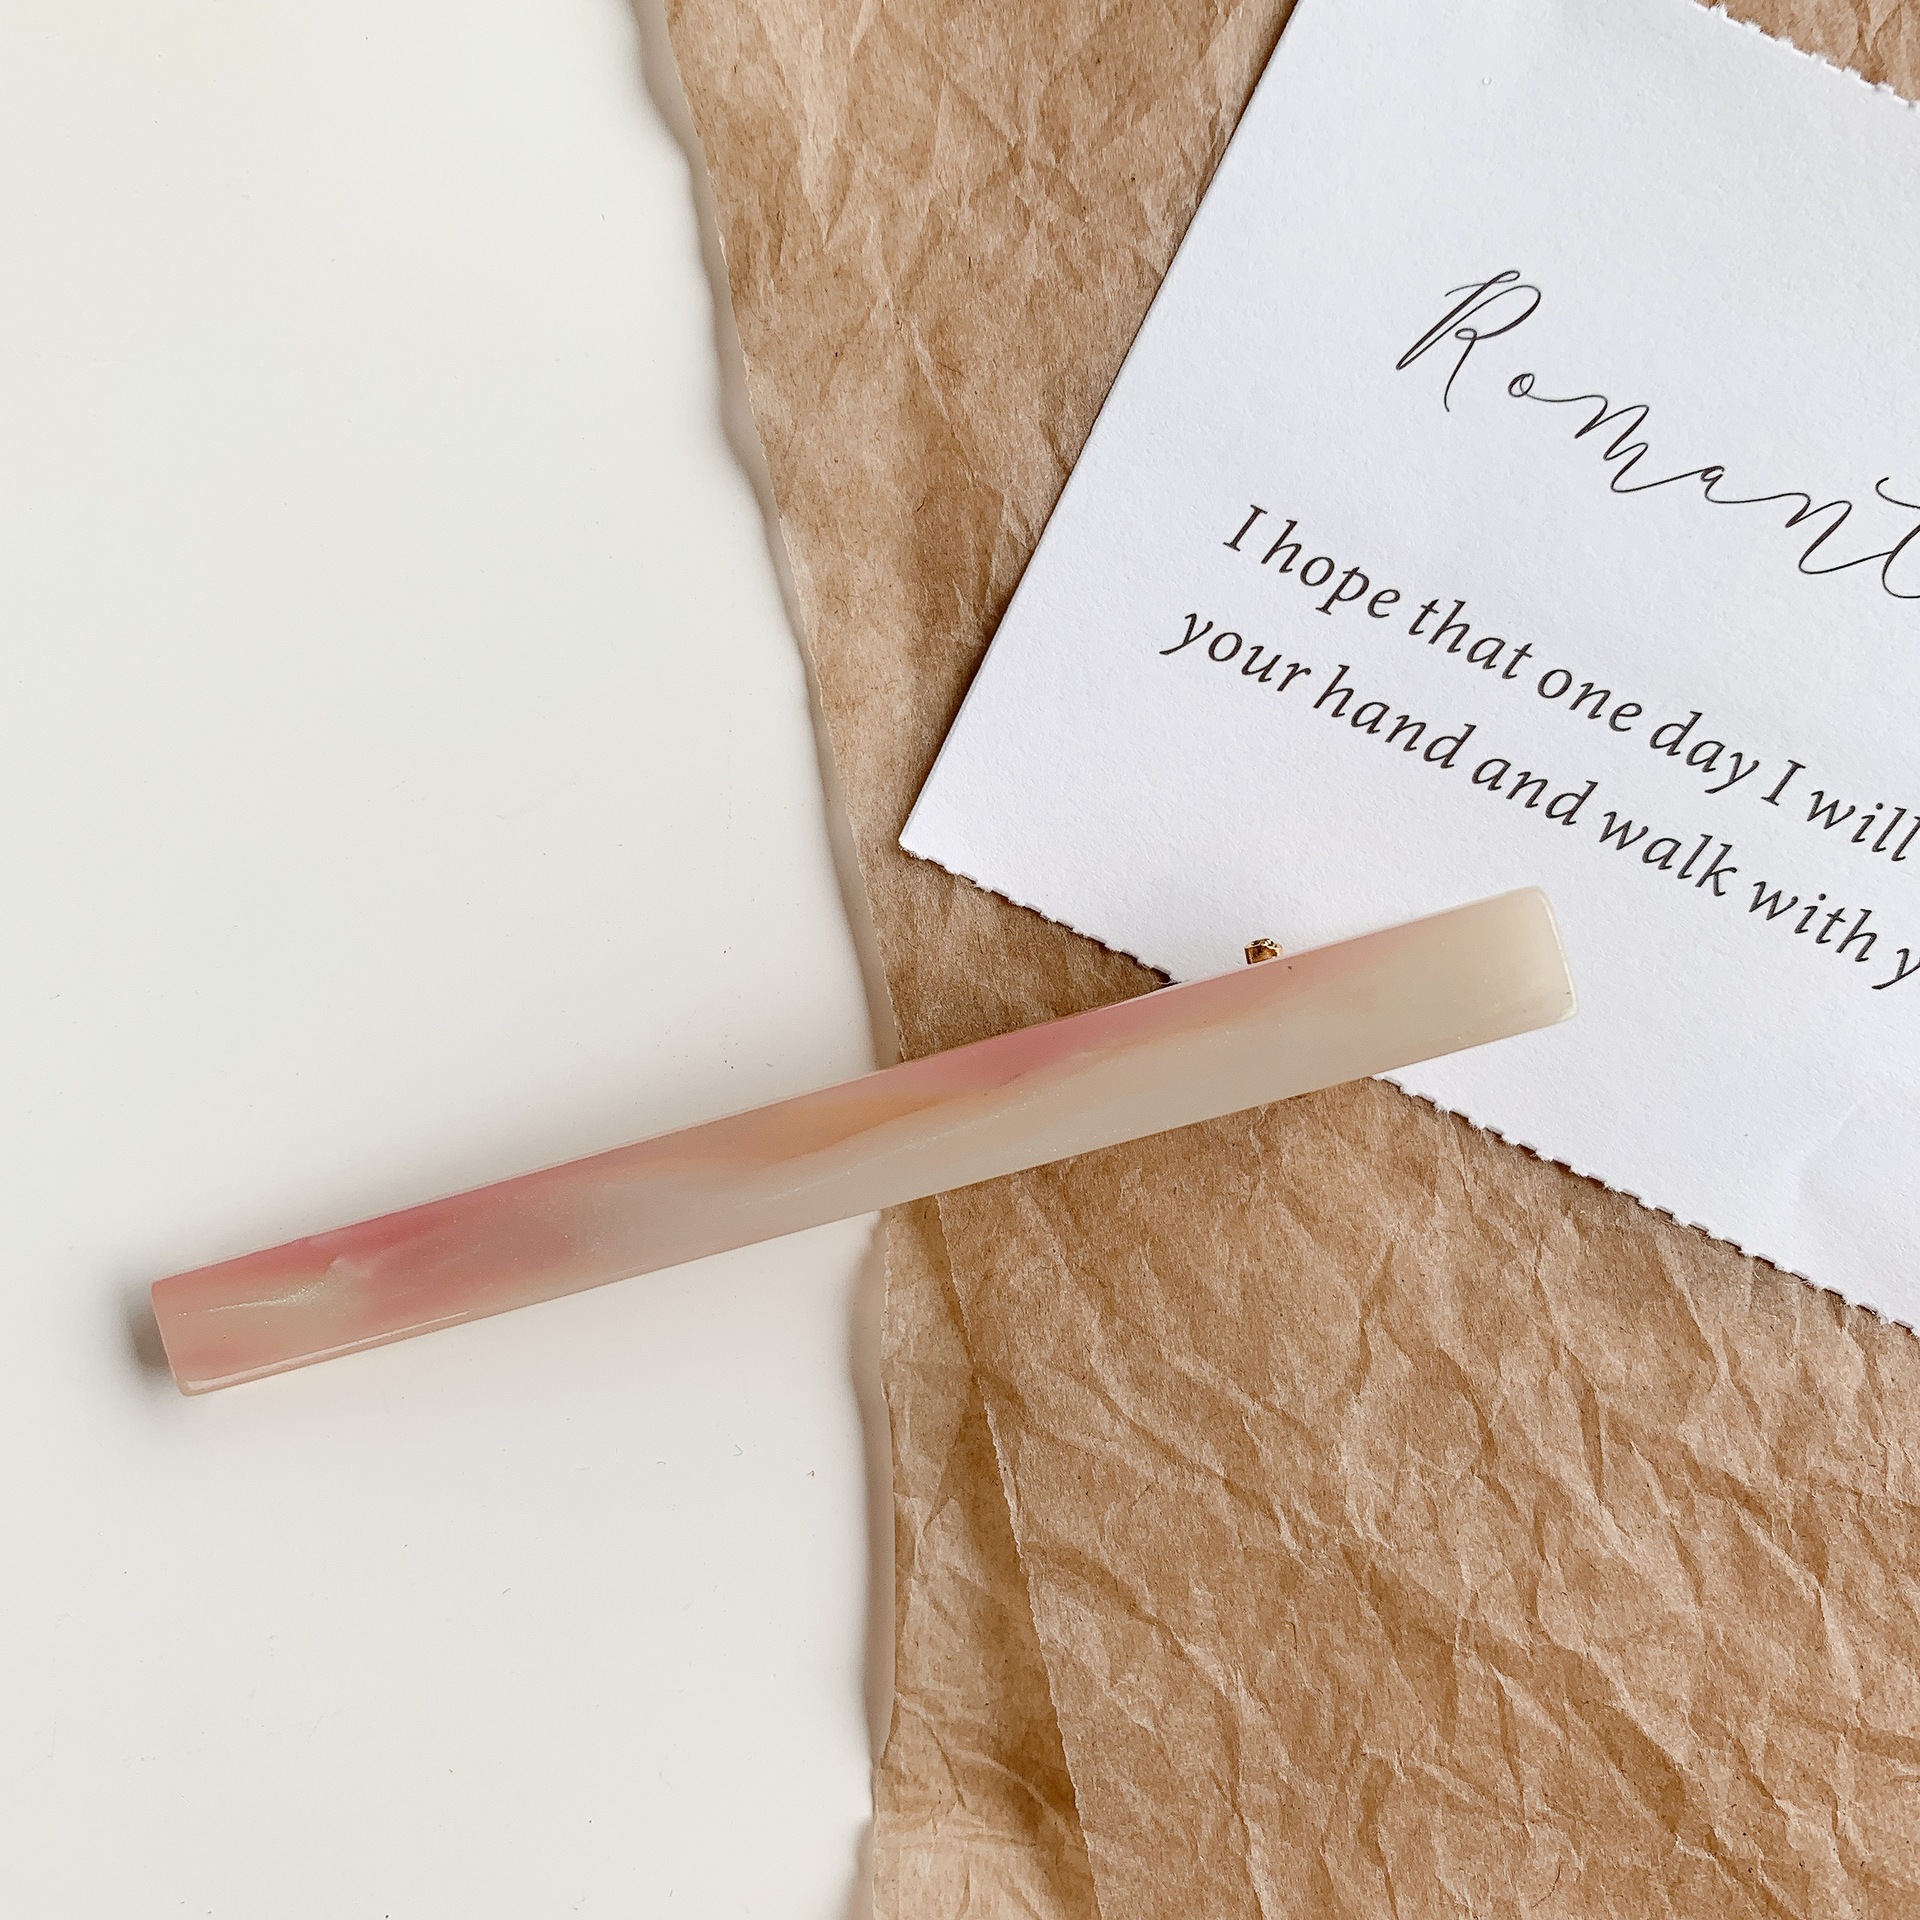 Romant
I hope that one day I will
your hand and walk with y